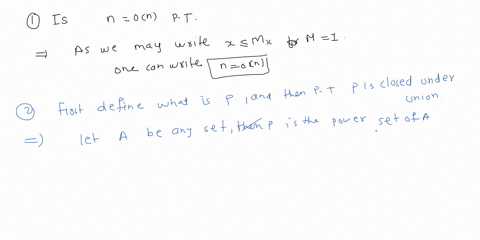 ① Is n = o(n) P.T.
⇒ As we may write x ≤ Mx for M = 1.
one can write n = o(n)
② first define what is P, and then P.T P is closed under
union.
⇒) let A be any set, then P is the power set of A